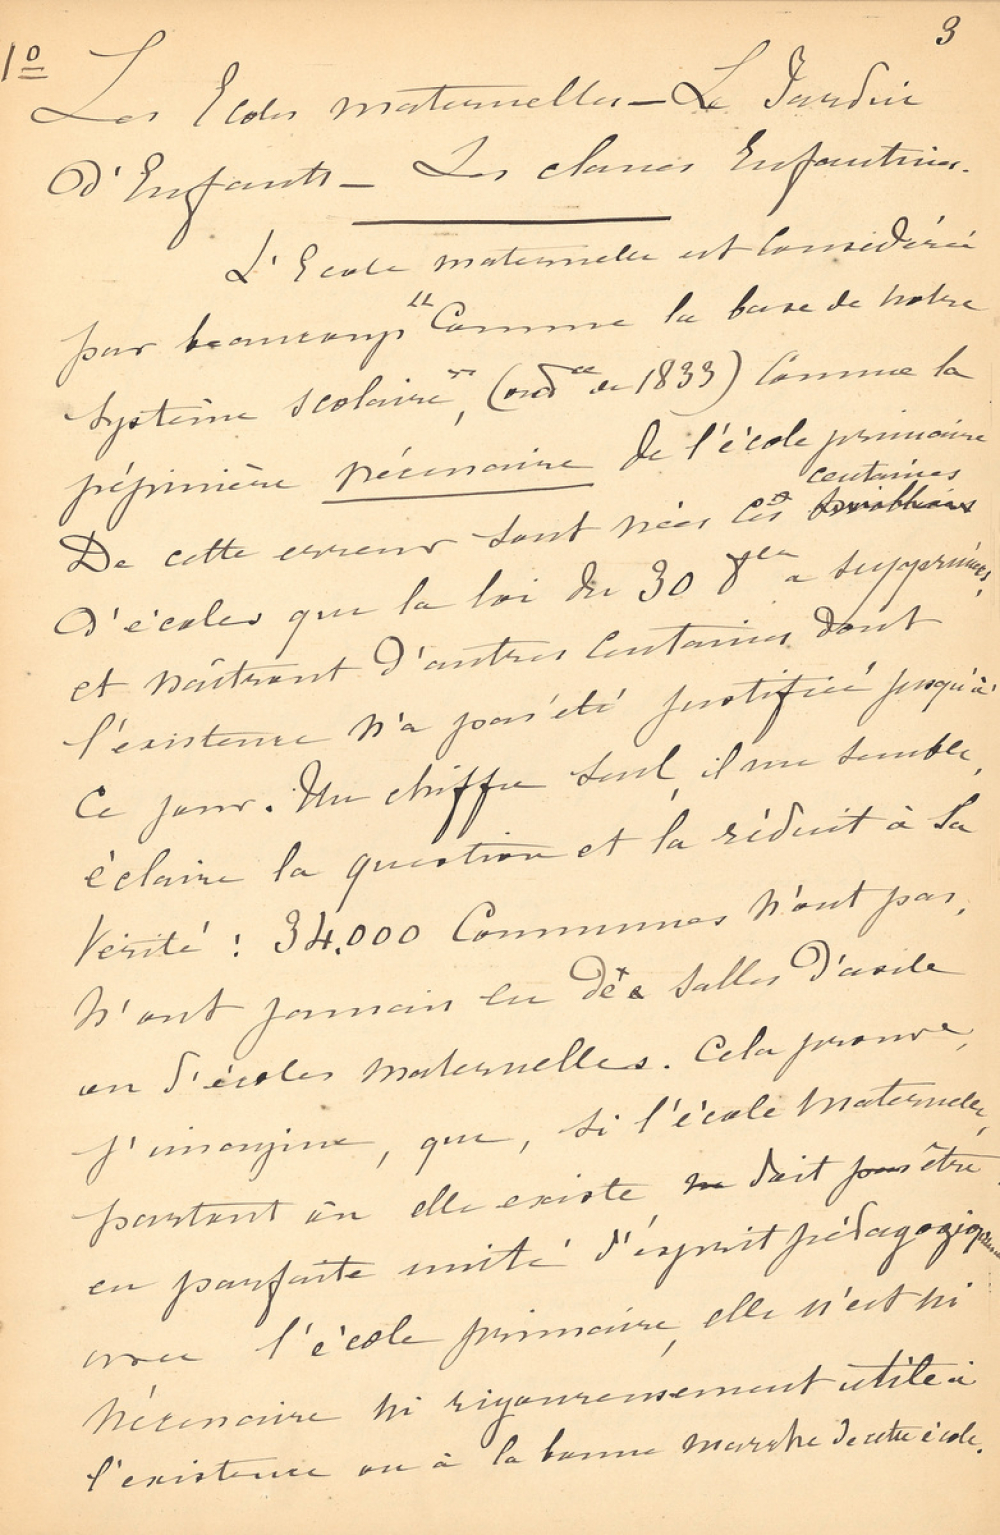 3
1º
Les Ecoles maternelles — Le Jardin
d'Enfants — Les classes Enfantines.
L'Ecole maternelle est considérée
par beaucoup "Comme la base de notre
système scolaire", (ordce de 1833) Comme la
pépinière nécessaire de l'école primaire
De cette erreur sont nées ces centaines
d'écoles que la loi du 30 8bre a supprimées,
et naîtront d'autres Centaines dont
l'existence n'a pas été justifiée jusqu'à
Ce jour. Un chiffre seul, il me semble,
éclaire la question et la réduit à sa
Vérité : 34.000 Communes n'ont pas,
n'ont jamais eu de salles d'asile
ou d'écoles maternelles. Cela prouve,
j'imagine, que, si l'école maternelle,
partout où elle existe doit être
en parfaite unité d'esprit pédagogique
avec l'école primaire, elle n'est ni
nécessaire ni rigoureusement utile à
l'existence ou à la bonne marche de cette école.